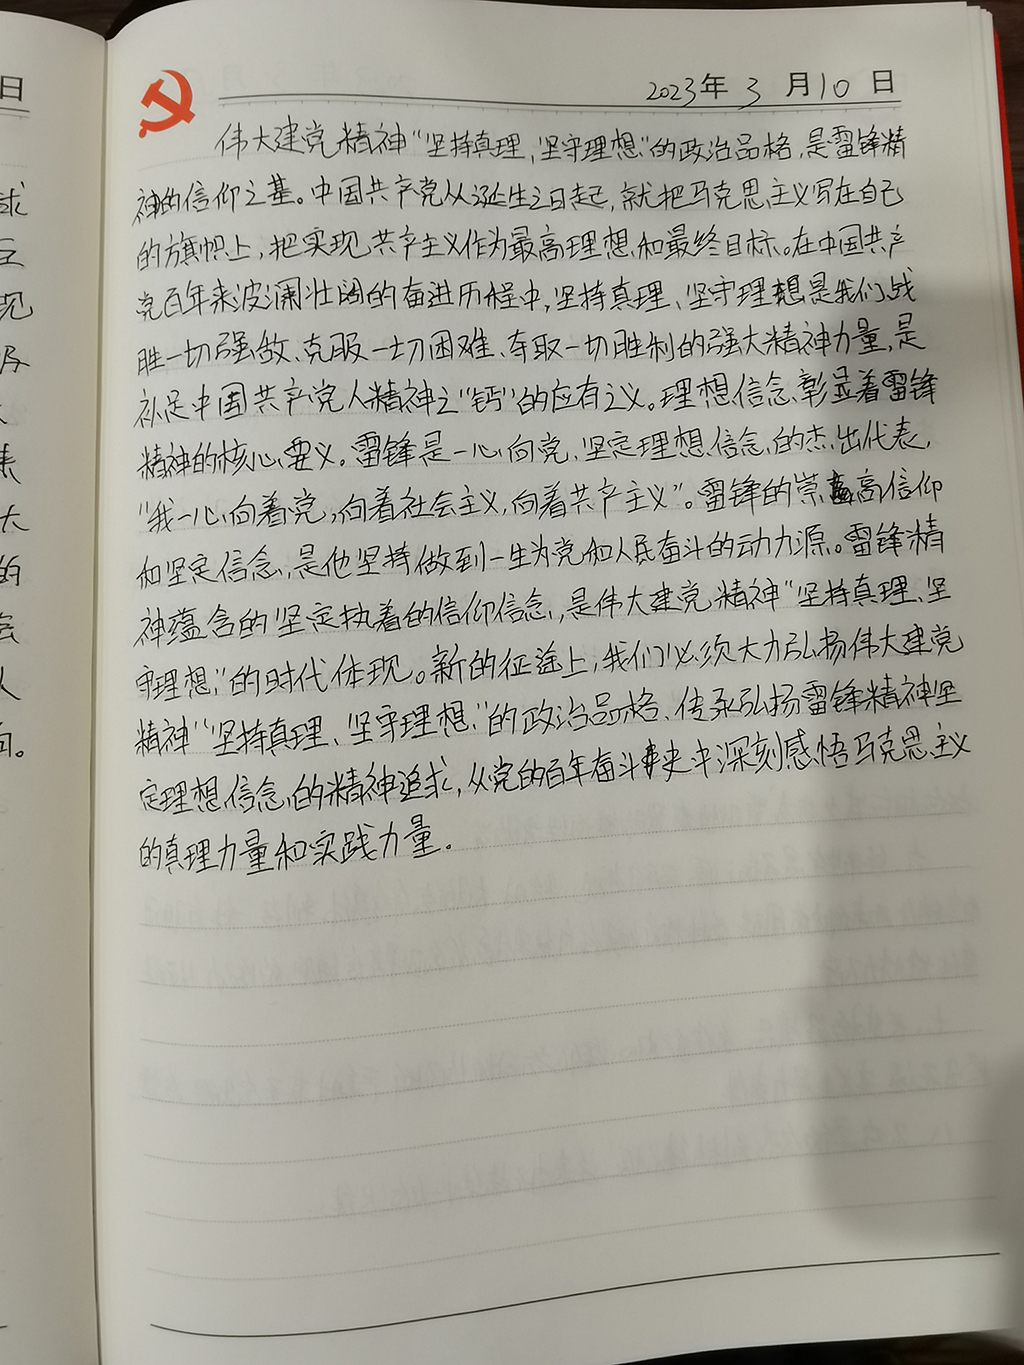 日
2023年 3 月10日
伟大建党精神“坚持真理、坚守理想”的政治品格,是雷锋精
神的信仰之基。中国共产党从诞生之日起,就把马克思主义写在自己
的旗帜上,把实现共产主义作为最高理想和最终目标。在中国共产
党百年来波澜壮阔的奋进历程中,坚持真理、坚守理想是我们战
胜一切强敌、克服一切困难、夺取一切胜利的强大精神力量,是
补足中国共产党人精神之“钙”的应有之义。理想信念彰显着雷锋
精神的核心要义。雷锋是一心向党、坚定理想信念的杰出代表,
“我一心向着党,向着社会主义,向着共产主义”。雷锋的崇高信仰
和坚定信念,是他坚持做到一生为党和人民奋斗的动力源。雷锋精
神蕴含的坚定执着的信仰信念,是伟大建党精神“坚持真理、坚
守理想”的时代体现。新的征途上,我们必须大力弘扬伟大建党
精神“坚持真理、坚守理想”的政治品格、传承弘扬雷锋精神坚
定理想信念的精神追求,从党的百年奋斗史中深刻感悟马克思主义
的真理力量和实践力量。